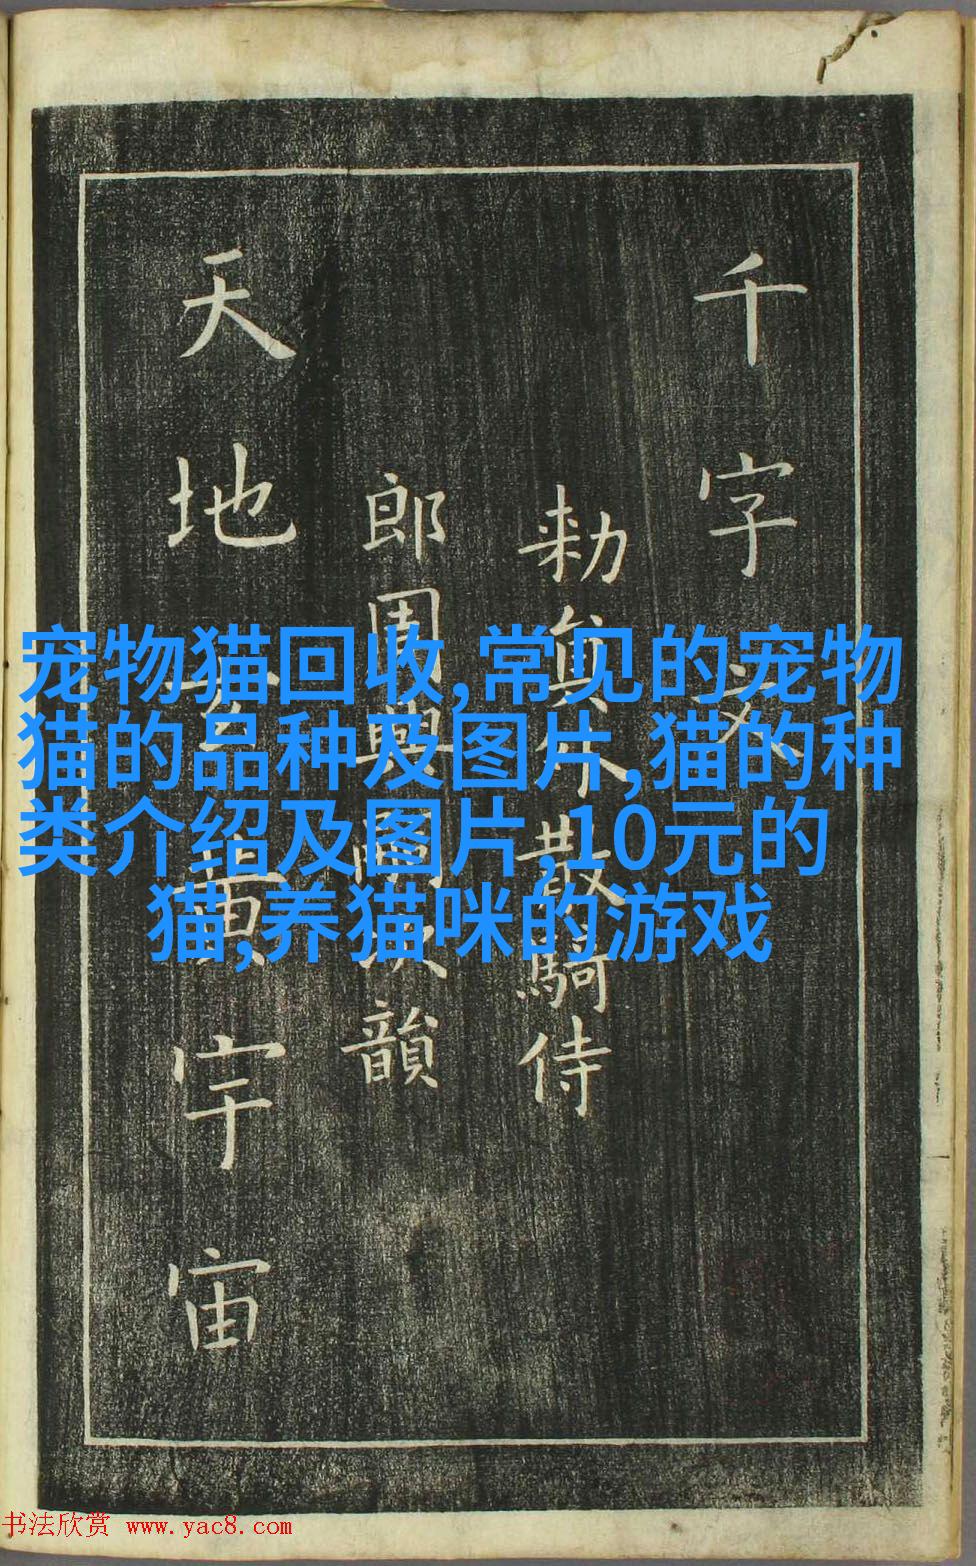 千字文
勑員外散騎侍
郎周興嗣次韻
天地玄黃宇宙
宠物猫回收,常见的宠物
猫的品种及图片,猫的种
类介绍及图片,10元的
猫,养猫咪的游戏
书法欣赏 www.yac8.com